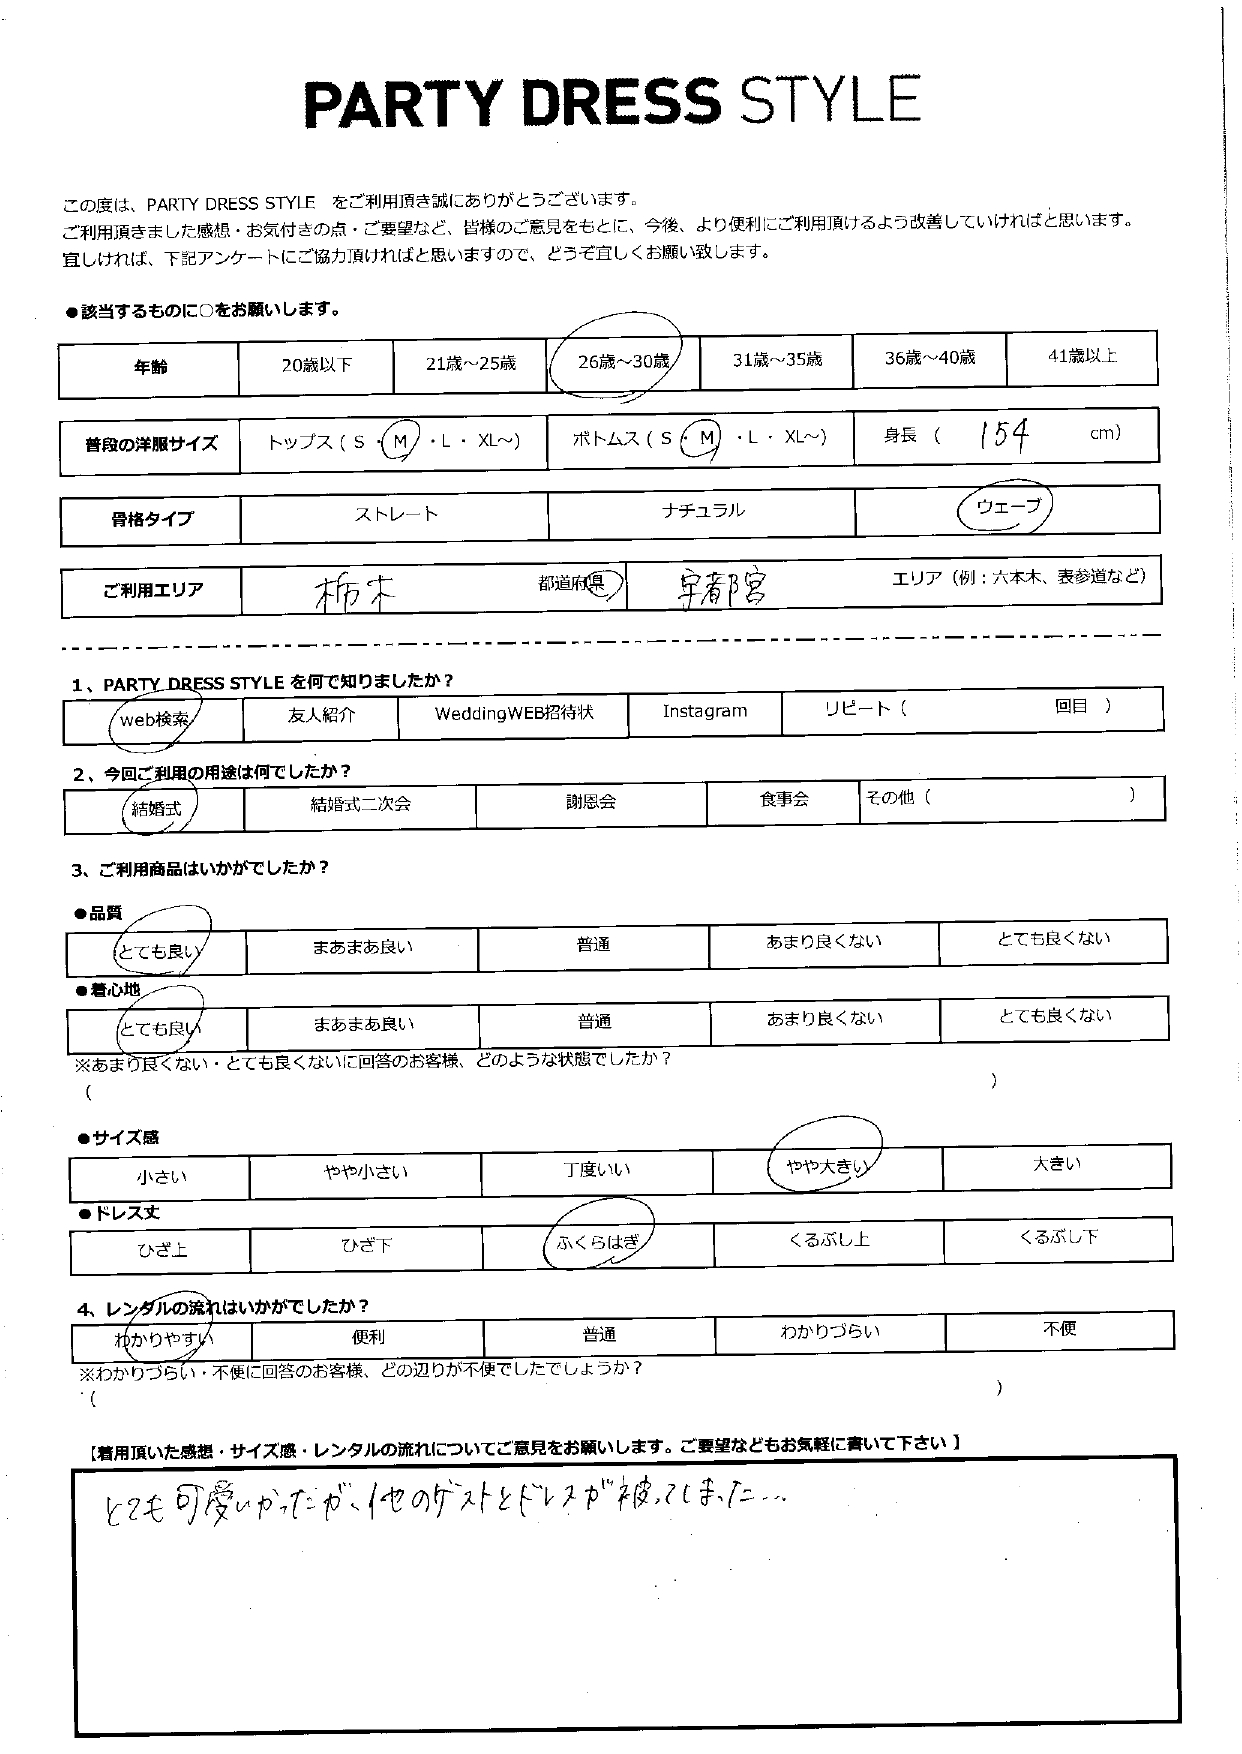 PARTY DRESS STYLE
この度は、PARTY DRESS STYLE をご利用頂き誠にありがとうございます。
ご利用頂きました感想・お気付きの点・ご要望など、皆様のご意見をもとに、今後、より便利にご利用頂けるよう改善していければと思います。
宜しければ、下記アンケートにご協力頂ければと思いますので、どうぞ宜しくお願い致します。
●該当するものに○をお願いします。
年齢 20歳以下 21歳～25歳 26歳～30歳 31歳～35歳 36歳～40歳 41歳以上
普段の洋服サイズ トップス（ S ・ M ・ L ・ XL～） ボトムス（ S ・ M ・ L ・ XL～） 身長 （ 154 cm）
骨格タイプ ストレート ナチュラル ウェーブ
ご利用エリア 栃木 都道府県 宇都宮 エリア（例：六本木、表参道など）
1、PARTY DRESS STYLE を何で知りましたか？
web検索 友人紹介 WeddingWEB招待状 Instagram リピート（ 回目 ）
2、今回ご利用の用途は何でしたか？
結婚式 結婚式二次会 謝恩会 食事会 その他（ ）
3、ご利用商品はいかがでしたか？
●品質
とても良い まあまあ良い 普通 あまり良くない とても良くない
●着心地
とても良い まあまあ良い 普通 あまり良くない とても良くない
※あまり良くない・とても良くないに回答のお客様、どのような状態でしたか？
（ ）
●サイズ感
小さい やや小さい 丁度いい やや大きい 大きい
●ドレス丈
ひざ上 ひざ下 ふくらはぎ くるぶし上 くるぶし下
4、レンタルの流れはいかがでしたか？
わかりやすい 便利 普通 わかりづらい 不便
※わかりづらい・不便に回答のお客様、どの辺りが不便でしたでしょうか？
（ ）
【着用頂いた感想・サイズ感・レンタルの流れについてご意見をお願いします。ご要望などもお気軽に書いて下さい 】
とても可愛いかったが、他のゲストとドレスが被ってしまった…